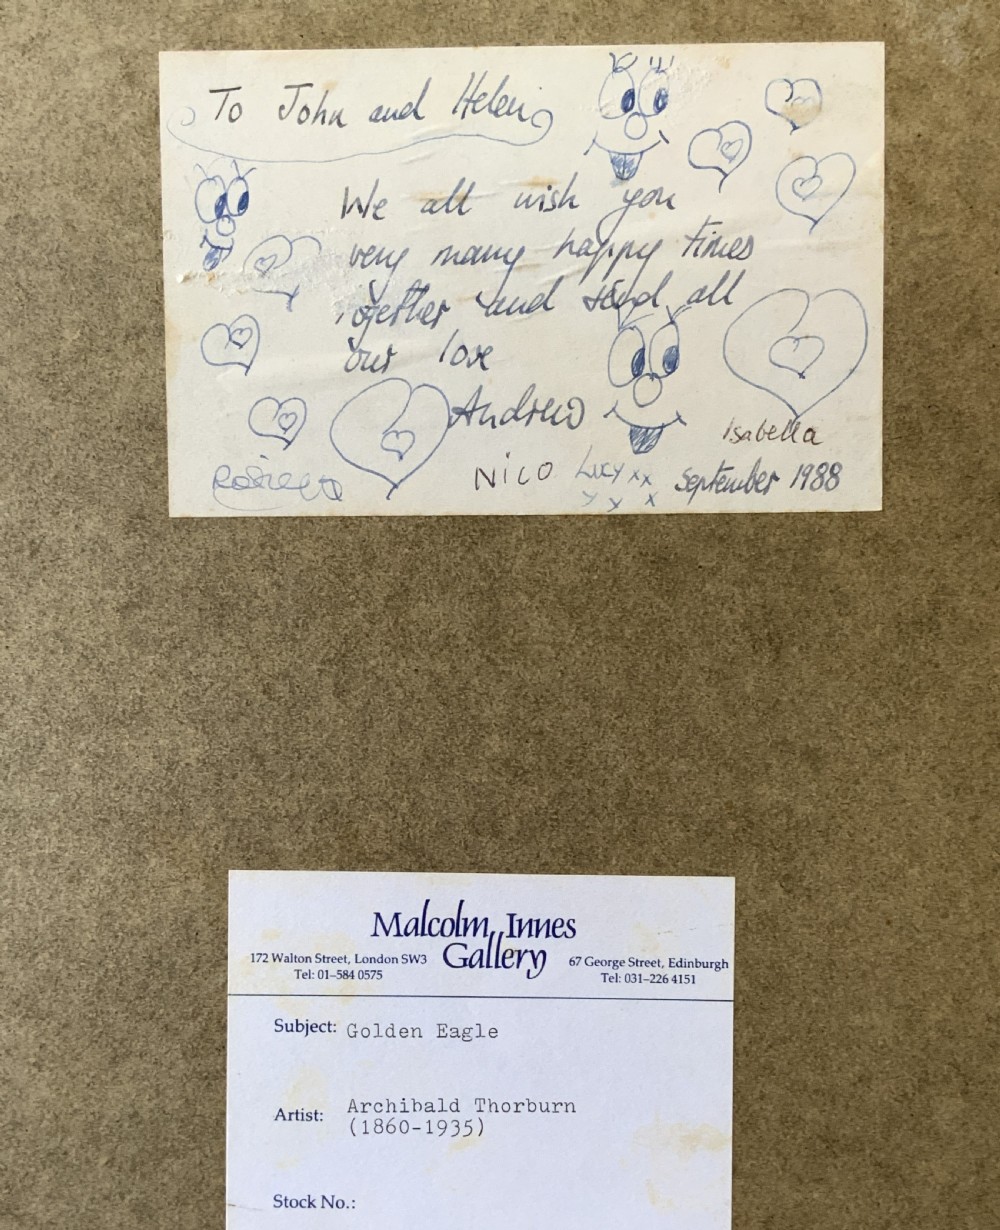 To John and Helen
We all wish you
very many happy times
together and send all
our love
Andrew
Isabella
Nico Lucy xx September 1988
y y x
Malcolm Innes
Gallery
172 Walton Street, London SW3
Tel: 01–584 0575
67 George Street, Edinburgh
Tel: 031–226 4151
Subject: Golden Eagle
Artist: Archibald Thorburn
(1860-1935)
Stock No.: